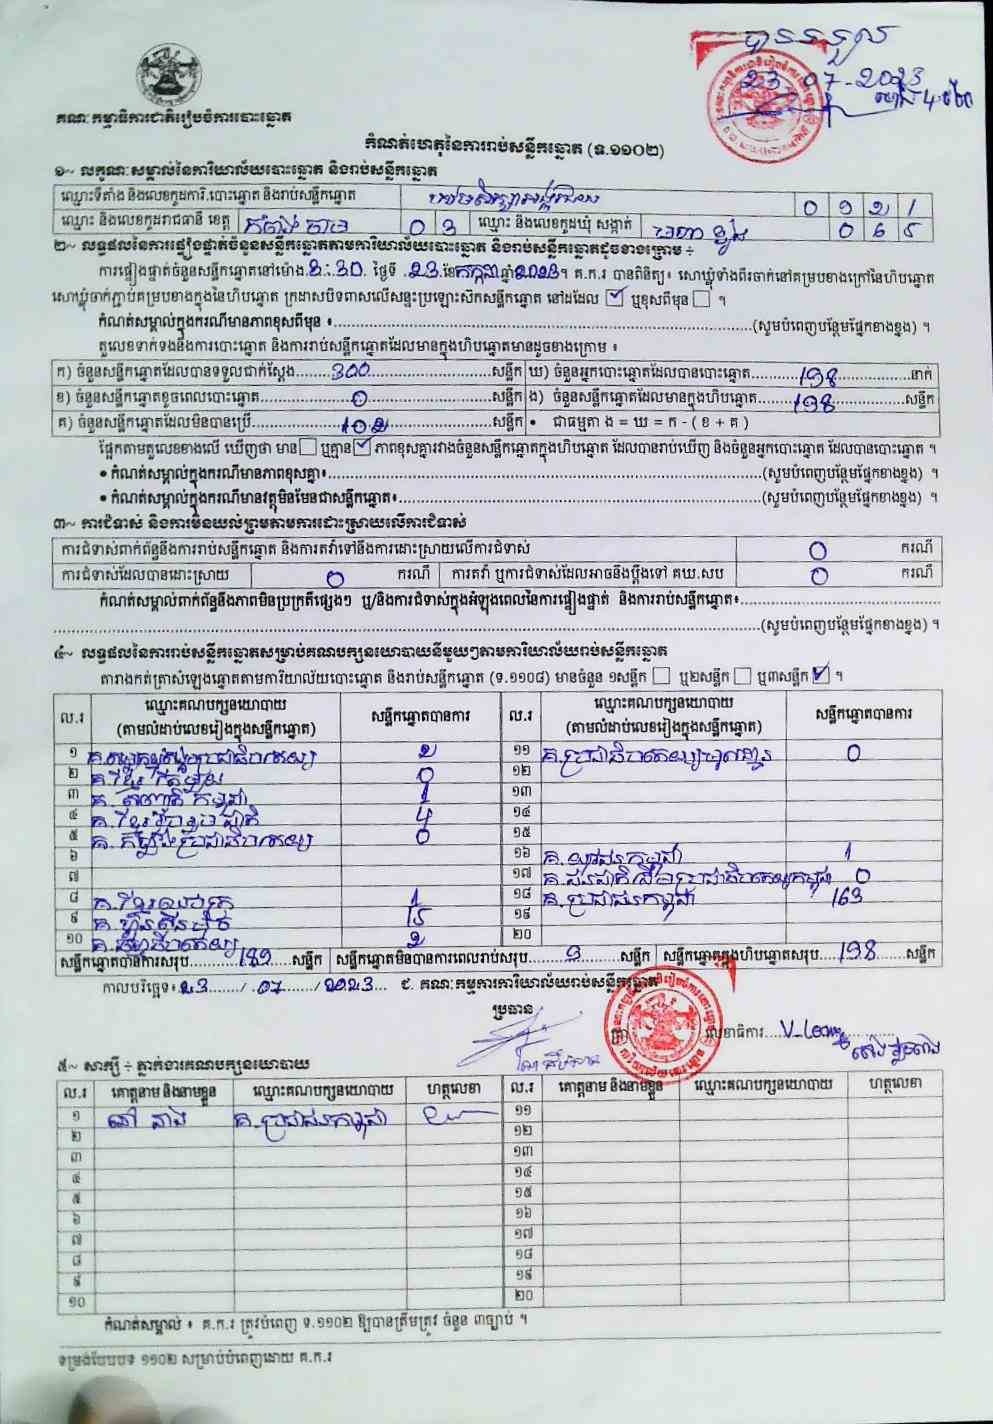 បានទទួល
23-07-2023
ម៉ោង 4:
គណៈកម្មាធិការជាតិរៀបចំការបោះឆ្នោត
កំណត់ហេតុនៃការរាប់សន្លឹកឆ្នោត (ទ.១១០២)
១~ លក្ខណៈសម្គាល់នៃការិយាល័យបោះឆ្នោត និងរាប់សន្លឹកឆ្នោត
ឈ្មោះទីតាំង និងលេខកូដការិ.បោះឆ្នោត និងរាប់សន្លឹកឆ្នោត 0 9 2 1
ឈ្មោះ និងលេខកូដរាជធានី ខេត្ត កំពង់ចាម 0 3 ឈ្មោះ និងលេខកូដឃុំ សង្កាត់ 0 6 5
២~ លទ្ធផលនៃការផ្ទៀងផ្ទាត់ចំនួនសន្លឹកឆ្នោតតាមការិយាល័យបោះឆ្នោត និងរាប់សន្លឹកឆ្នោតដូចខាងក្រោម ÷
ការផ្ទៀងផ្ទាត់ចំនួនសន្លឹកឆ្នោតនៅម៉ោង 3:30 ថ្ងៃទី 23 ខែ កក្កដា ឆ្នាំ 2023។ គ.ក.រ បានពិនិត្យ៖ សោឃ្លុំទាំងពីរចាក់នៅគម្របខាងក្រៅនៃហិបឆ្នោត
សោឃ្លុំចាក់ភ្ជាប់គម្របខាងក្នុងនៃហិបឆ្នោត ក្រដាសបិទពាសលើសន្ទះប្រឡោះសិកសន្លឹកឆ្នោត នៅដដែល ☑ ឬខុសពីមុន ☐ ។
កំណត់សម្គាល់ក្នុងករណីមានភាពខុសពីមុន ៖..........(សូមបំពេញបន្ថែមផ្នែកខាងខ្នង) ។
តួលេខទាក់ទងនឹងការបោះឆ្នោត និងការរាប់សន្លឹកឆ្នោតដែលមានក្នុងហិបឆ្នោតមានដូចខាងក្រោម ៖
ក) ចំនួនសន្លឹកឆ្នោតដែលបានទទួលជាក់ស្តែង 300 សន្លឹក ឃ) ចំនួនអ្នកបោះឆ្នោតដែលបានបោះឆ្នោត 198 នាក់
ខ) ចំនួនសន្លឹកឆ្នោតខូចពេលបោះឆ្នោត 0 សន្លឹក ង) ចំនួនសន្លឹកឆ្នោតដែលមានក្នុងហិបឆ្នោត 198 សន្លឹក
គ) ចំនួនសន្លឹកឆ្នោតដែលមិនបានប្រើ 102 សន្លឹក • ជាធម្មតា ង = ឃ = ក - ( ខ + គ )
ផ្អែកតាមតួលេខខាងលើ ឃើញថា មាន ☐ ឬគ្មាន ☑ ភាពខុសគ្នារវាងចំនួនសន្លឹកឆ្នោតក្នុងហិបឆ្នោត ដែលបានរាប់ឃើញ និងចំនួនអ្នកបោះឆ្នោត ដែលបានបោះឆ្នោត ។
• កំណត់សម្គាល់ក្នុងករណីមានភាពខុសគ្នា៖..........(សូមបំពេញបន្ថែមផ្នែកខាងខ្នង) ។
• កំណត់សម្គាល់ក្នុងករណីមានវត្ថុមិនមែនជាសន្លឹកឆ្នោត៖..........(សូមបំពេញបន្ថែមផ្នែកខាងខ្នង) ។
៣~ ការជំទាស់ និងការមិនយល់ព្រមតាមការដោះស្រាយលើការជំទាស់
ការជំទាស់ពាក់ព័ន្ធនឹងការរាប់សន្លឹកឆ្នោត និងការតវ៉ាទៅនឹងការដោះស្រាយលើការជំទាស់ 0 ករណី
ការជំទាស់ដែលបានដោះស្រាយ 0 ករណី ការតវ៉ា ឬការជំទាស់ដែលអាចនឹងប្តឹងទៅ គឃ.សប 0 ករណី
កំណត់សម្គាល់ពាក់ព័ន្ធនឹងភាពមិនប្រក្រតីផ្សេងៗ ឬ/និងការជំទាស់ក្នុងអំឡុងពេលនៃការផ្ទៀងផ្ទាត់ និងការរាប់សន្លឹកឆ្នោត៖..........
..........(សូមបំពេញបន្ថែមផ្នែកខាងខ្នង) ។
៤~ លទ្ធផលនៃការរាប់សន្លឹកឆ្នោតសម្រាប់គណបក្សនយោបាយនីមួយៗតាមការិយាល័យរាប់សន្លឹកឆ្នោត
តារាងកត់ត្រាសំឡេងឆ្នោតតាមការិយាល័យបោះឆ្នោត និងរាប់សន្លឹកឆ្នោត (ទ.១១០៨) មានចំនួន ១សន្លឹក ☐ ឬ២សន្លឹក ☐ ឬ៣សន្លឹក ☑ ។
ល.រ ឈ្មោះគណបក្សនយោបាយ សន្លឹកឆ្នោតបានការ ល.រ ឈ្មោះគណបក្សនយោបាយ សន្លឹកឆ្នោតបានការ
(តាមលំដាប់លេខរៀងក្នុងសន្លឹកឆ្នោត) (តាមលំដាប់លេខរៀងក្នុងសន្លឹកឆ្នោត)
១ 2 ១១ 0
២ 0 ១២
៣ គ. កម្ពុជា 1 ១៣
៤ គ.ខ្មែររួបរួមជាតិ 4 ១៤
៥ គ. ប្រជាធិបតេយ្យ 0 ១៥
៦ ១៦ គ.យុវជនកម្ពុជា 1
៧ ១៧ 0
៨ គ.ខ្មែរ 1 ១៨ គ.ប្រជាជនកម្ពុជា 163
៩ គ.ហ៊្វុនស៊ិនប៉ិច 15 ១៩
១០ 2 ២០
សន្លឹកឆ្នោតបានការសរុប 189 សន្លឹក សន្លឹកឆ្នោតមិនបានការពេលរាប់សរុប 9 សន្លឹក សន្លឹកឆ្នោតក្នុងហិបឆ្នោតសរុប 198 សន្លឹក
កាលបរិច្ឆេទ៖ 23 / 07 / 2023 ជ. គណៈកម្មការការិយាល័យរាប់សន្លឹកឆ្នោត
ប្រធាន
លេខាធិការ
៥~ សាក្សី ÷ ភ្នាក់ងារគណបក្សនយោបាយ
ល.រ គោត្តនាម និងនាមខ្លួន ឈ្មោះគណបក្សនយោបាយ ហត្ថលេខា ល.រ គោត្តនាម និងនាមខ្លួន ឈ្មោះគណបក្សនយោបាយ ហត្ថលេខា
១ គ.ប្រជាជនកម្ពុជា ១១
២ ១២
៣ ១៣
៤ ១៤
៥ ១៥
៦ ១៦
៧ ១៧
៨ ១៨
៩ ១៩
១០ ២០
កំណត់សម្គាល់ ៖ គ.ក.រ ត្រូវបំពេញ ទ.១១០២ ឱ្យបានត្រឹមត្រូវ ចំនួន ៣ច្បាប់ ។
ទម្រង់បែបបទ ១១០២ សម្រាប់បំពេញដោយ គ.ក.រ